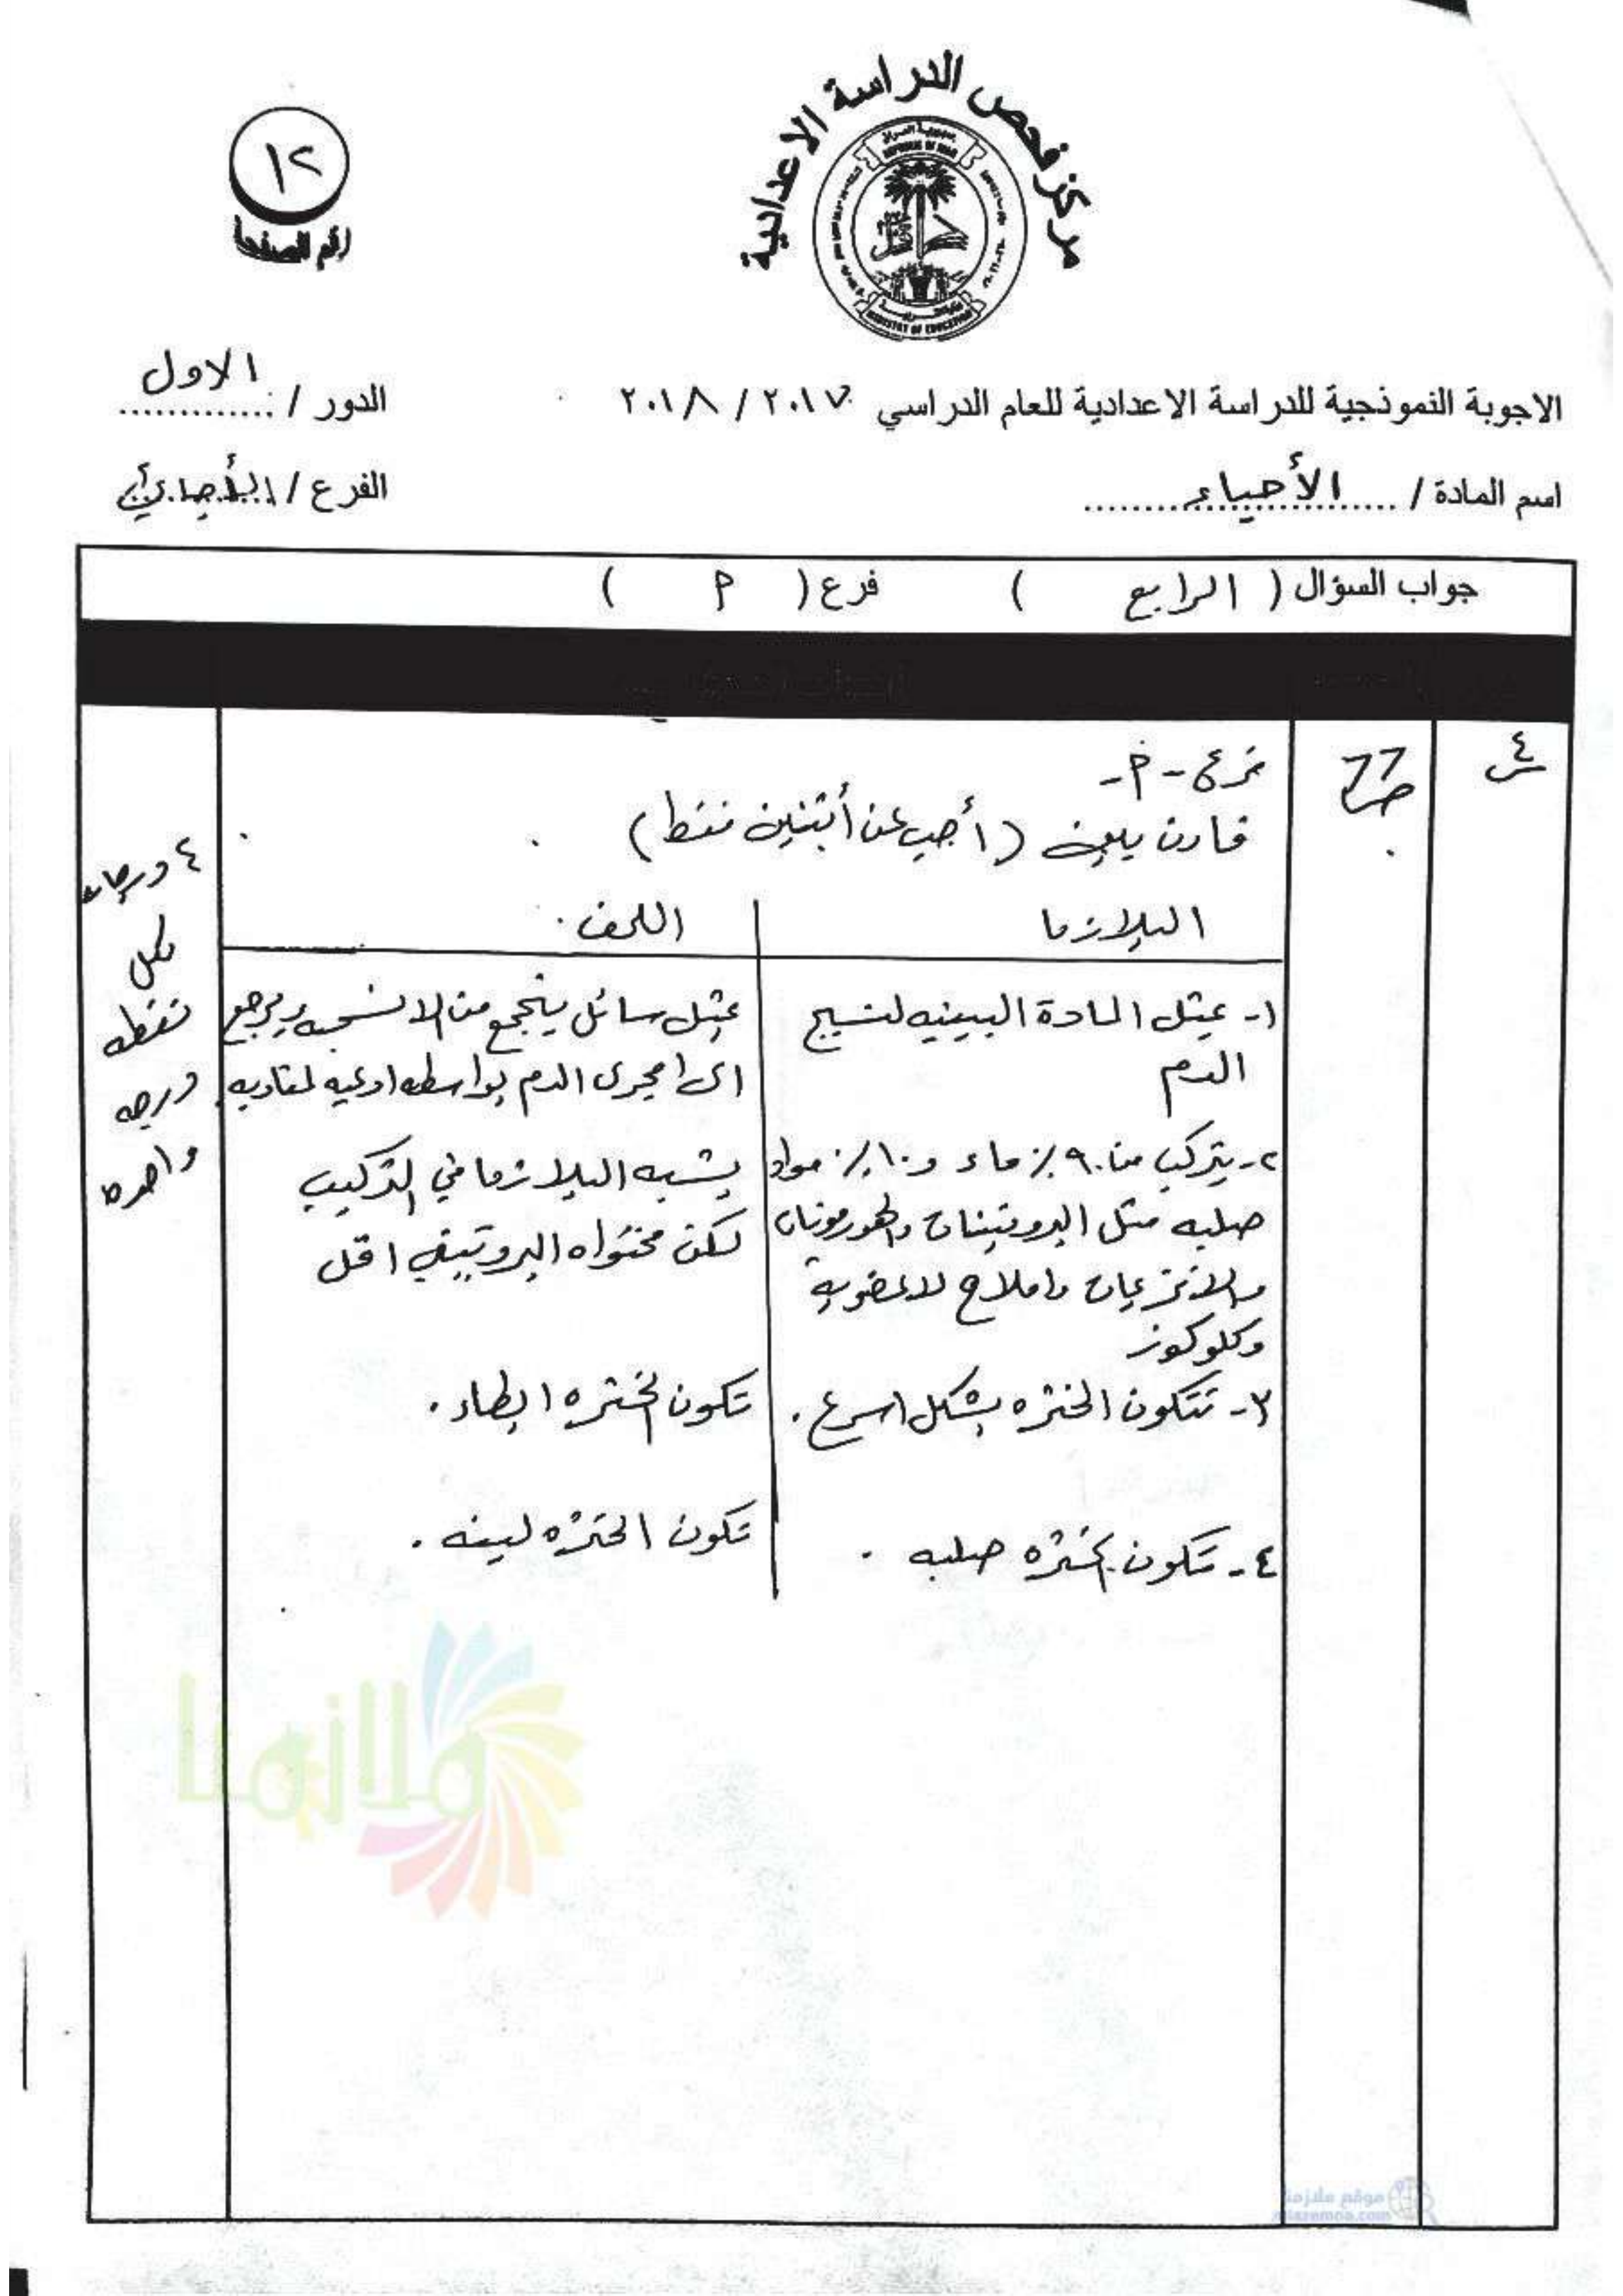 مركز فحص الدراسة الاعدادية
REPUBLIC OF IRAQ
MINISTRY OF EDUCATION
١٢
رقم الصفحة
الاجوبة النموذجية للدراسة الاعدادية للعام الدراسي ٢٠١٧ / ٢٠١٨
الدور / الاول
اسم المادة / الأحياء
الفرع / الأحيائي
جواب السؤال ( الرابع ) فرع ( أ )
س٤
ص٦٦
فرع - أ -
قارن بين (أجب عن أثنين فقط)
البلازما
اللمف
١- يمثل المادة البينيه لنسيج
الدم
يمثل سائل يتجمع من الانسجه ويرجع
الى مجرى الدم بواسطه اوعيه لمفاويه
٢- يتركب من ٩٠٪ ماء و ١٠٪ مواد
صلبه مثل البروتينات والهورمونات
والانزيمات واملاح لاعضوية
وكلوكوز
يشبه البلازما في التركيب
لكن محتواه البروتيني اقل
٣- تتكون الخثره بشكل اسرع .
تكون الخثره ابطاء .
٤- تكون الخثره صلبه .
تكون الخثره لينه .
٤ درجات
لكل
نقطه
درجه
واحده
ملازمنا
موقع ملازمنا
mlazemna.com